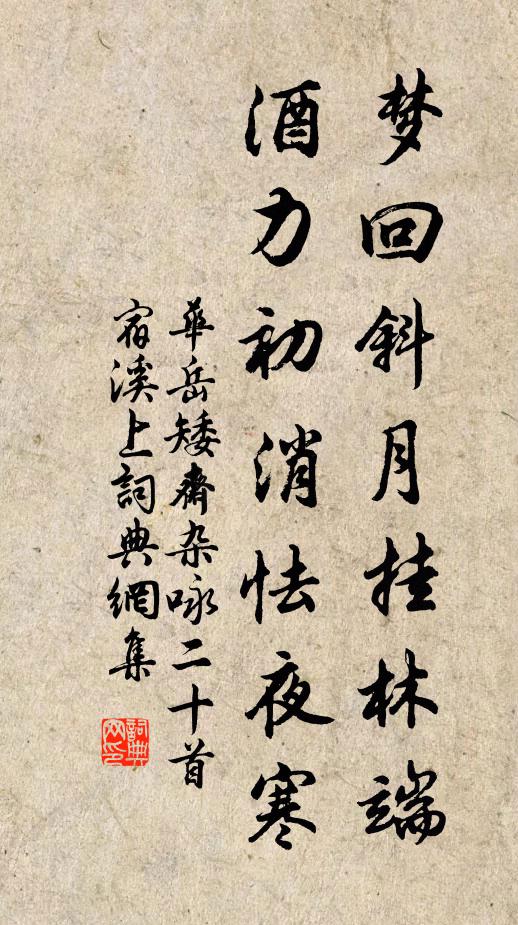 梦回斜月挂林端
酒力初消怯夜寒
華岳矮齋杂咏二十首
宿溪上詞典網集
詞典
网印